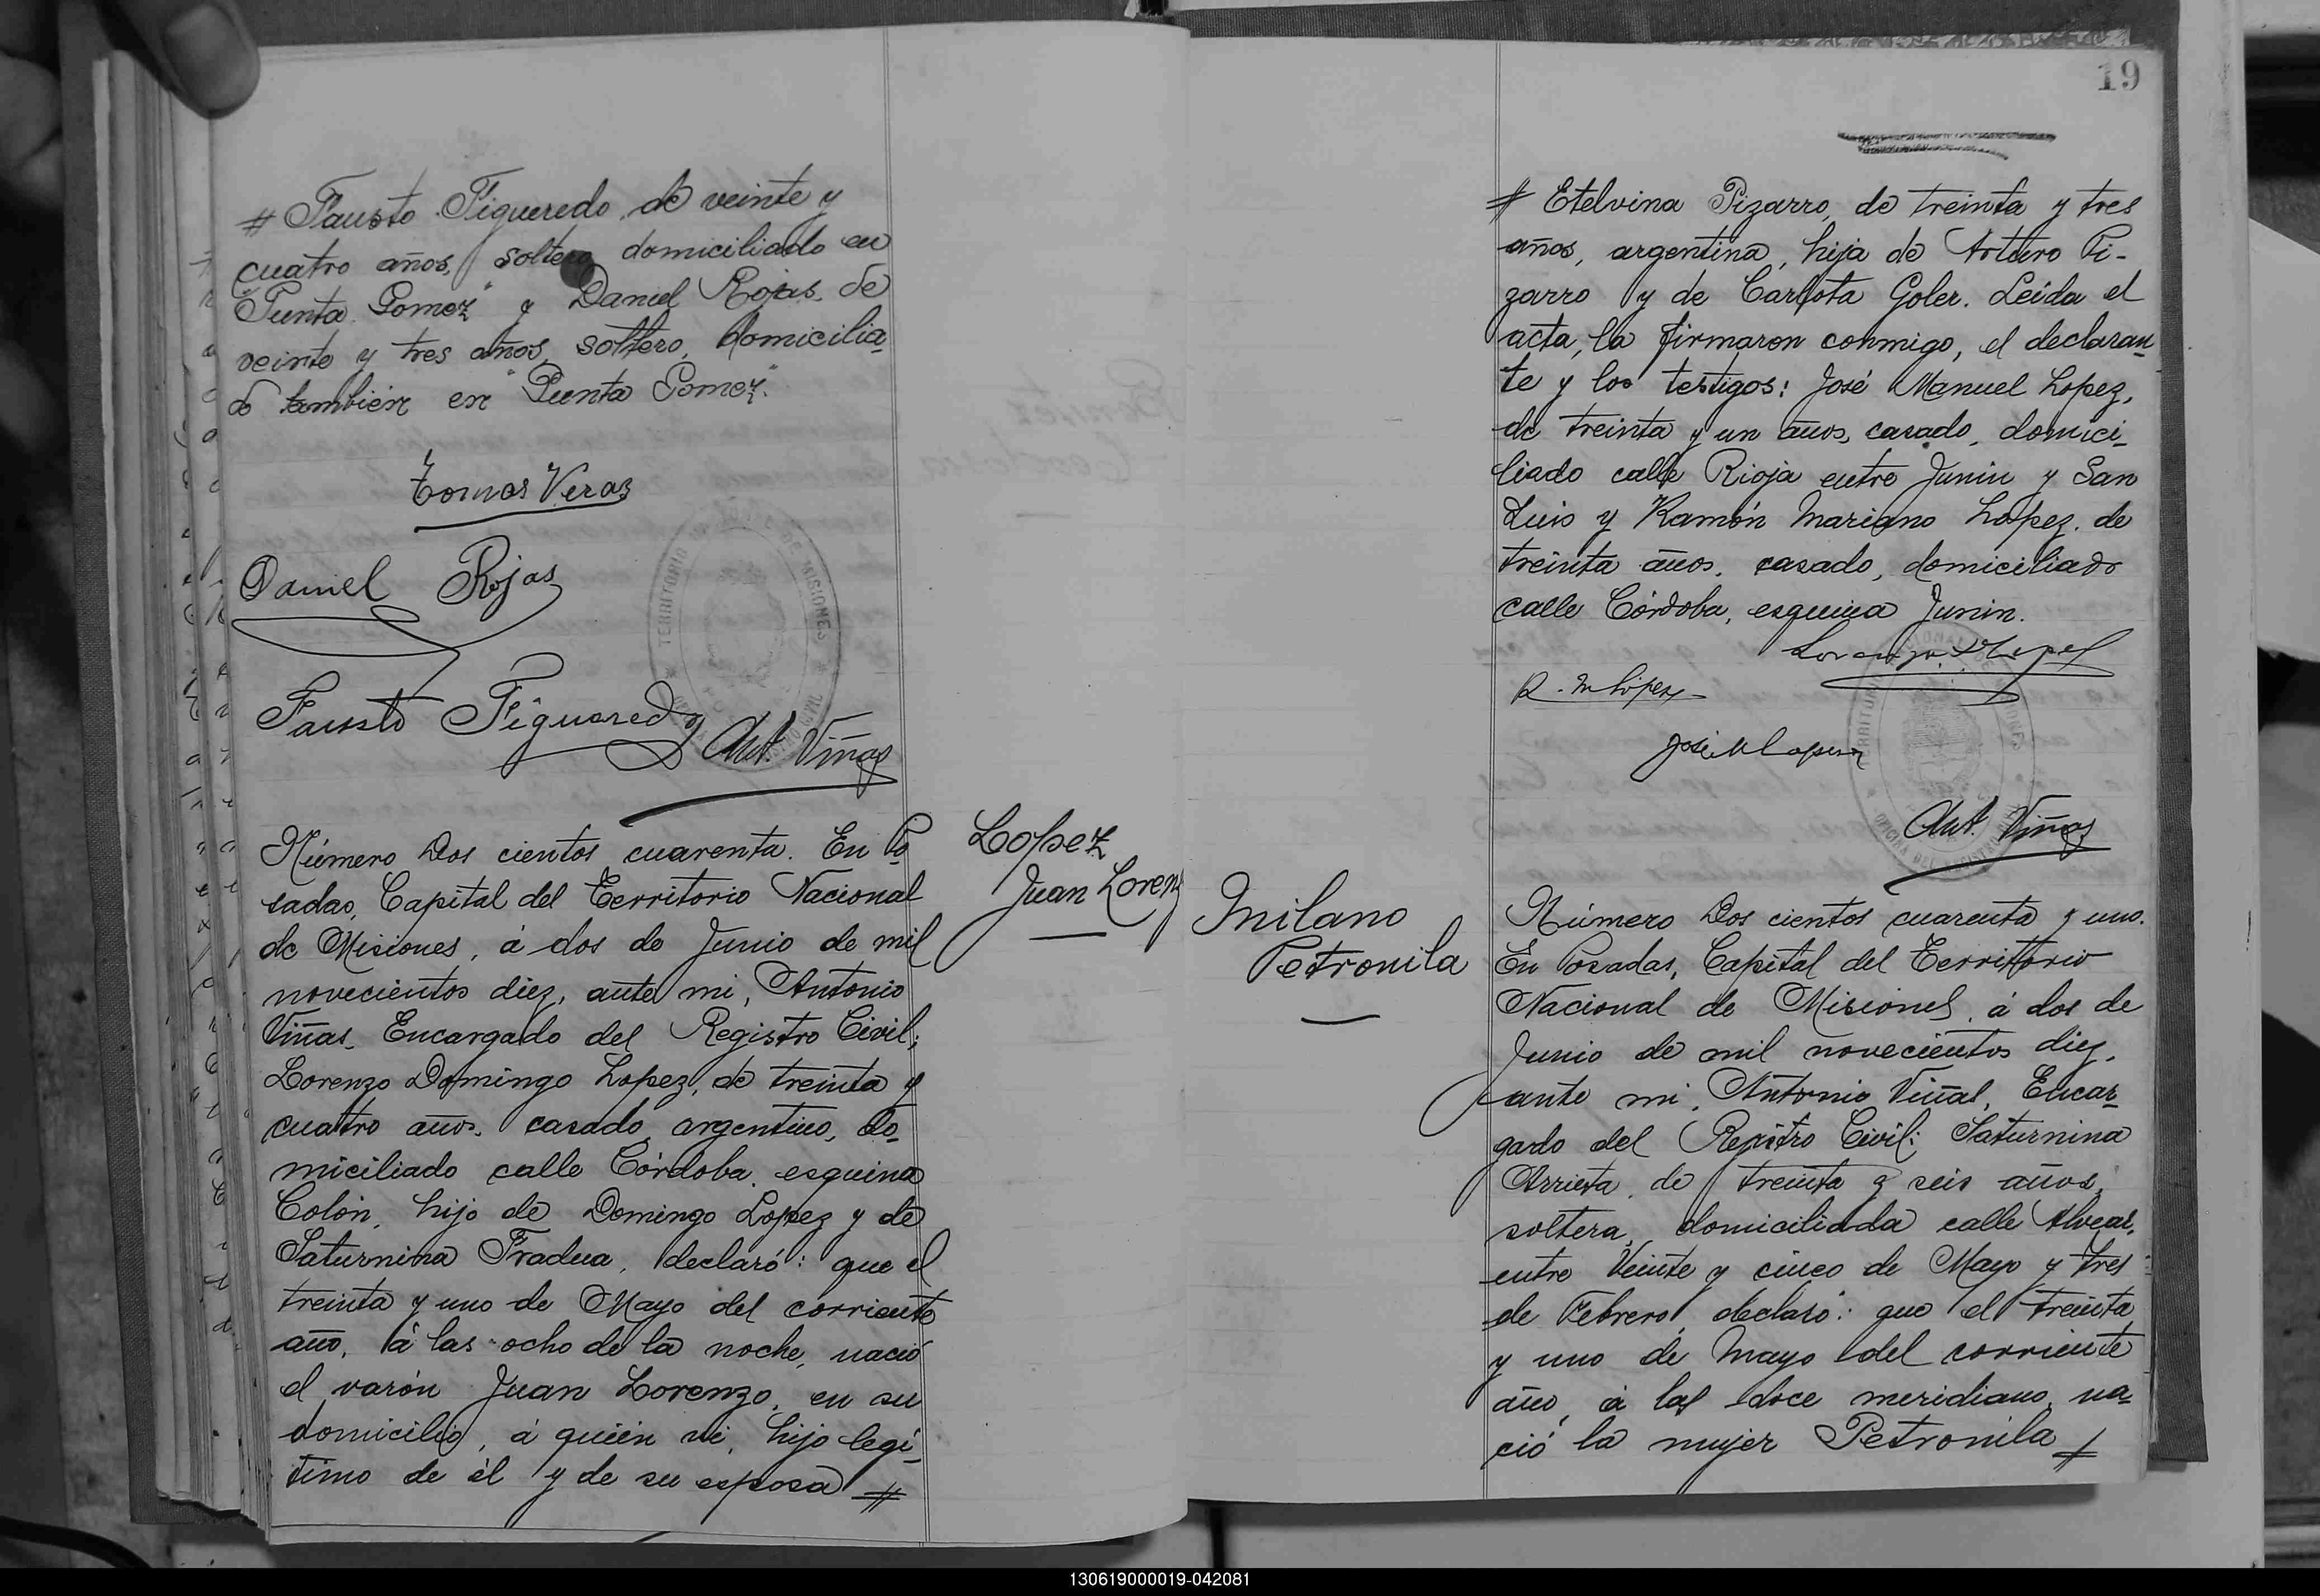 # Fausto Figueredo, de veinte y
cuatro años, soltero domiciliado en
"Punta Gomez" y Daniel Rojas, de
veinte y tres años, soltero, domicilia
do tambien en "Punta Gomez".
Tomas Veraz
Daniel Rojas
Fausto Figueredo
Ant. Viñas
TERRITORIO DE MISIONES
Número Dos cientos cuarenta. En Po
sadas, Capital del Territorio Nacional
de Misiones, á dos de Junio de mil
novecientos diez, ante mi, Antonio
Viñas, Encargado del Registro Civil;
Lorenzo Domingo Lopez, de treinta y
cuatro años, casado, argentino, do
miciliado calle Córdoba, esquina
Colón, hijo de Domingo Lopez y de
Saturnina Fradua, declaró: que el
treinta y uno de Mayo del corriente
año, á las ocho de la noche, nació
el varón Juan Lorenzo, en su
domicilio, á quién vi, hijo legi
timo de él y de su esposa #
Lopez
Juan Lorenz
19
# Etelvina Pizarro, de treinta y tres
años, argentina, hija de Arturo Pi-
zarro y de Carlota Goler. Leida el
acta, la firmaron conmigo, el declaran
te y los testigos: José Manuel Lopez,
de treinta y un años, casado, domici
liado calle Rioja entre Junin y San
Luis y Ramón Mariano Lopez, de
treinta años, casado, domiciliado
calle Córdoba, esquina Junin.
R. M Lópe
José M Lopez
Ant. Viñas
Milano
Petronila
Número Dos cientos cuarenta y uno.
En Posadas, Capital del Territorio
Nacional de Misiones, á dos de
Junio de mil novecientos diez,
ante mi, Antonio Viñas, Encar
gado del Registro Civil: Saturnina
Arrieta, de treinta y seis años,
soltera, domiciliada calle Alvear,
entre Veinte y cinco de Mayo y tres
de Febrero, declaró: que el treinta
y uno de Mayo del corriente
año, á las doce meridiano, na
ció la mujer Petronila #
130619000019-042081